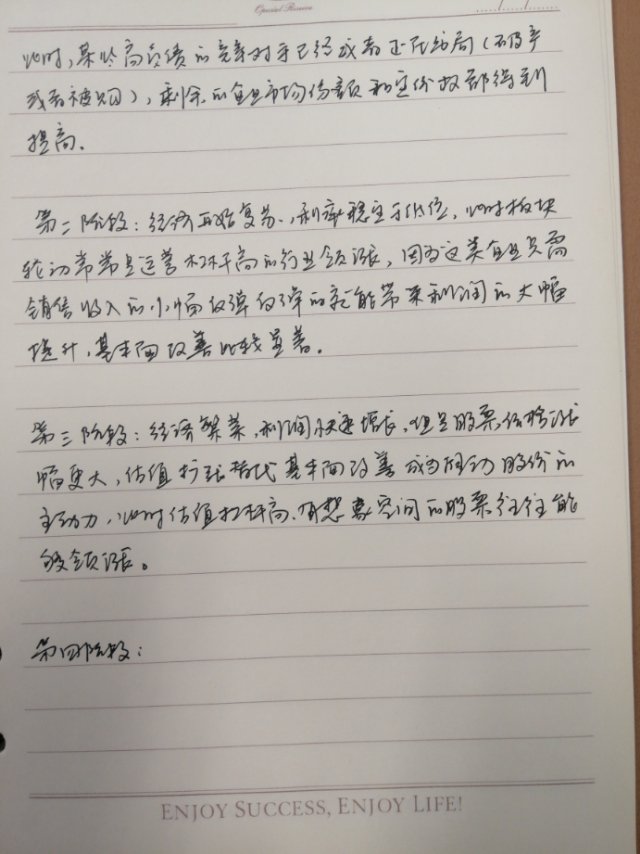 Special Reserve
此时，某些高负债的竞争对手已经或者正在结局（破产
或者被购），剩余的企业市场份额和定价权都得到
提高。
第二阶段：经济开始复苏，利率稳定于低位，此时板块
轮动常常是运营杠杆高的行业领涨，因为这类企业只需
销售收入的小幅反弹反弹的就能带来利润的大幅
提升，基本面改善比较显著。
第三阶段：经济繁荣，利润快速增长，但是股票价格涨
幅更大，估值扩张替代基本面改善成为推动股价的
主动力，此时估值杠杆高、有想象空间的股票往往能
够领涨。
第四阶段：
ENJOY SUCCESS, ENJOY LIFE!